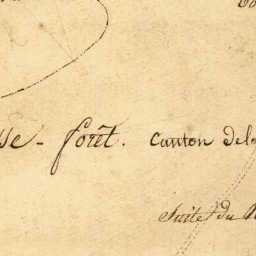 sse - forêt. Canton de la
Suite du